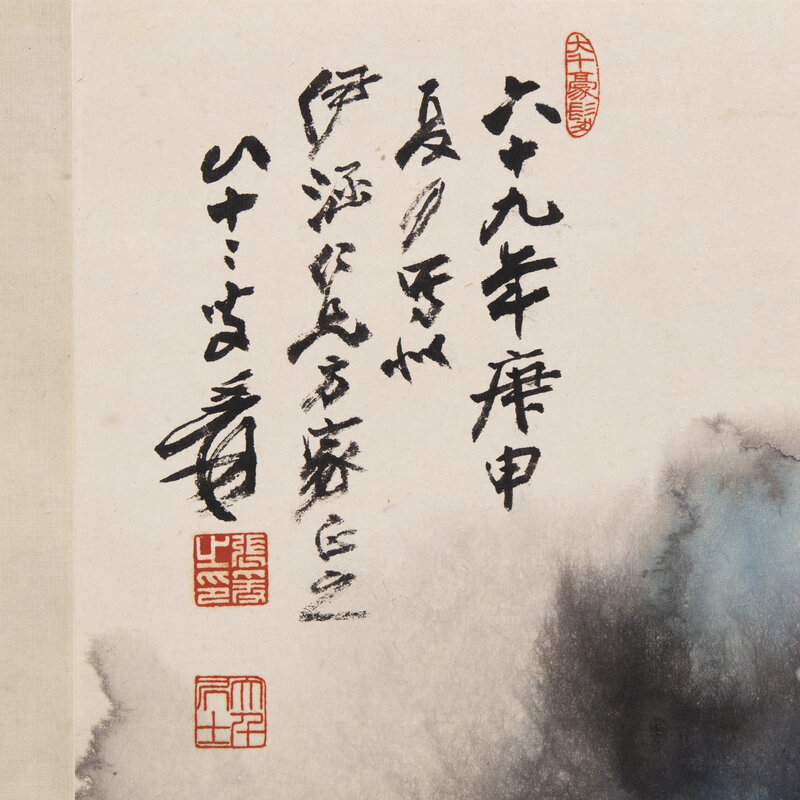 大千豪髮
六十九年庚申
夏寫似
伊涵仁兄方家正之
八十二叟爰
張爰之印
大千居士